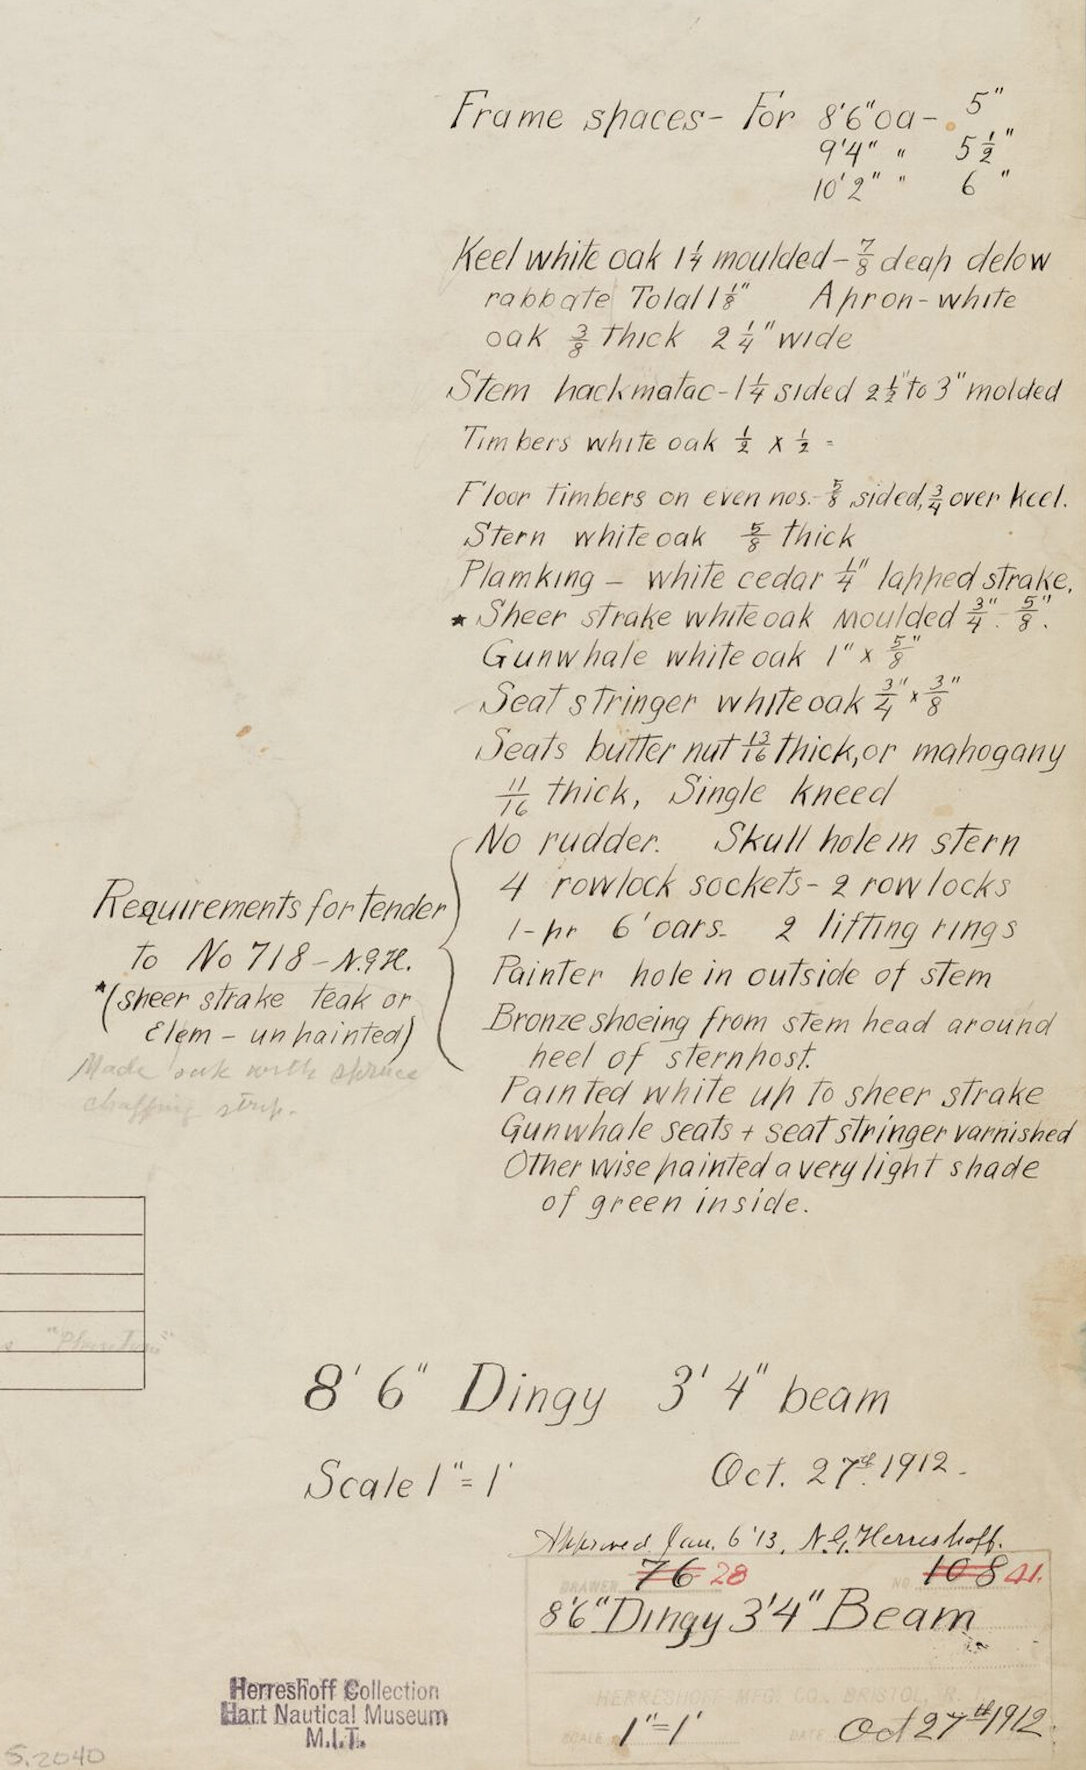 Frame spaces - For 8'6" oa - 5"
9'4" " 5 1/2"
10'2" " 6 "
Keel white oak 1 1/4 moulded - 7/8 deap delow
rabbate Total 1 1/8" Apron - white
oak 3/8 thick 2 1/4" wide
Stem hackmatac - 1 1/4 sided 2 1/2" to 3" molded
Timbers white oak 1/2 x 1/2 -
Floor timbers on even nos. - 5/8 sided, 3/4 over keel.
Stern white oak 5/8 thick
Plamking - white cedar 1/4" lapped strake.
* Sheer strake white oak moulded 3/4" - 5/8".
Gunwhale white oak 1" x 5/8"
Seat stringer white oak 3/4" x 3/8"
Seats butter nut 13/16 thick, or mahogany
11/16 thick, Single kneed
No rudder. Skull hole in stern
4 rowlock sockets - 2 rowlocks
1-pr 6' oars. 2 lifting rings
Painter hole in outside of stem
Bronze shoeing from stem head around
heel of sternpost.
Painted white up to sheer strake
Gunwhale seats + seat stringer varnished
Other wise painted a very light shade
of green inside.
Requirements for tender
to No 718 - N.G.H.
*(sheer strake teak or
Elem - unpainted)
Made oak with spruce
chaffing strip.
8' 6" Dingy 3' 4" beam
Scale 1" = 1'
Oct. 27th 1912.
Approved Jan. 6 '13, N.G. Herreshoff.
DRAWER 76 28 NO. 108 41.
8'6" Dingy 3'4" Beam
HERRESHOFF MFG. CO., BRISTOL, R.I.
SCALE 1"=1' DATE Oct 27th 1912.
Herreshoff Collection
Hart Nautical Museum
M.I.T.
S.2040